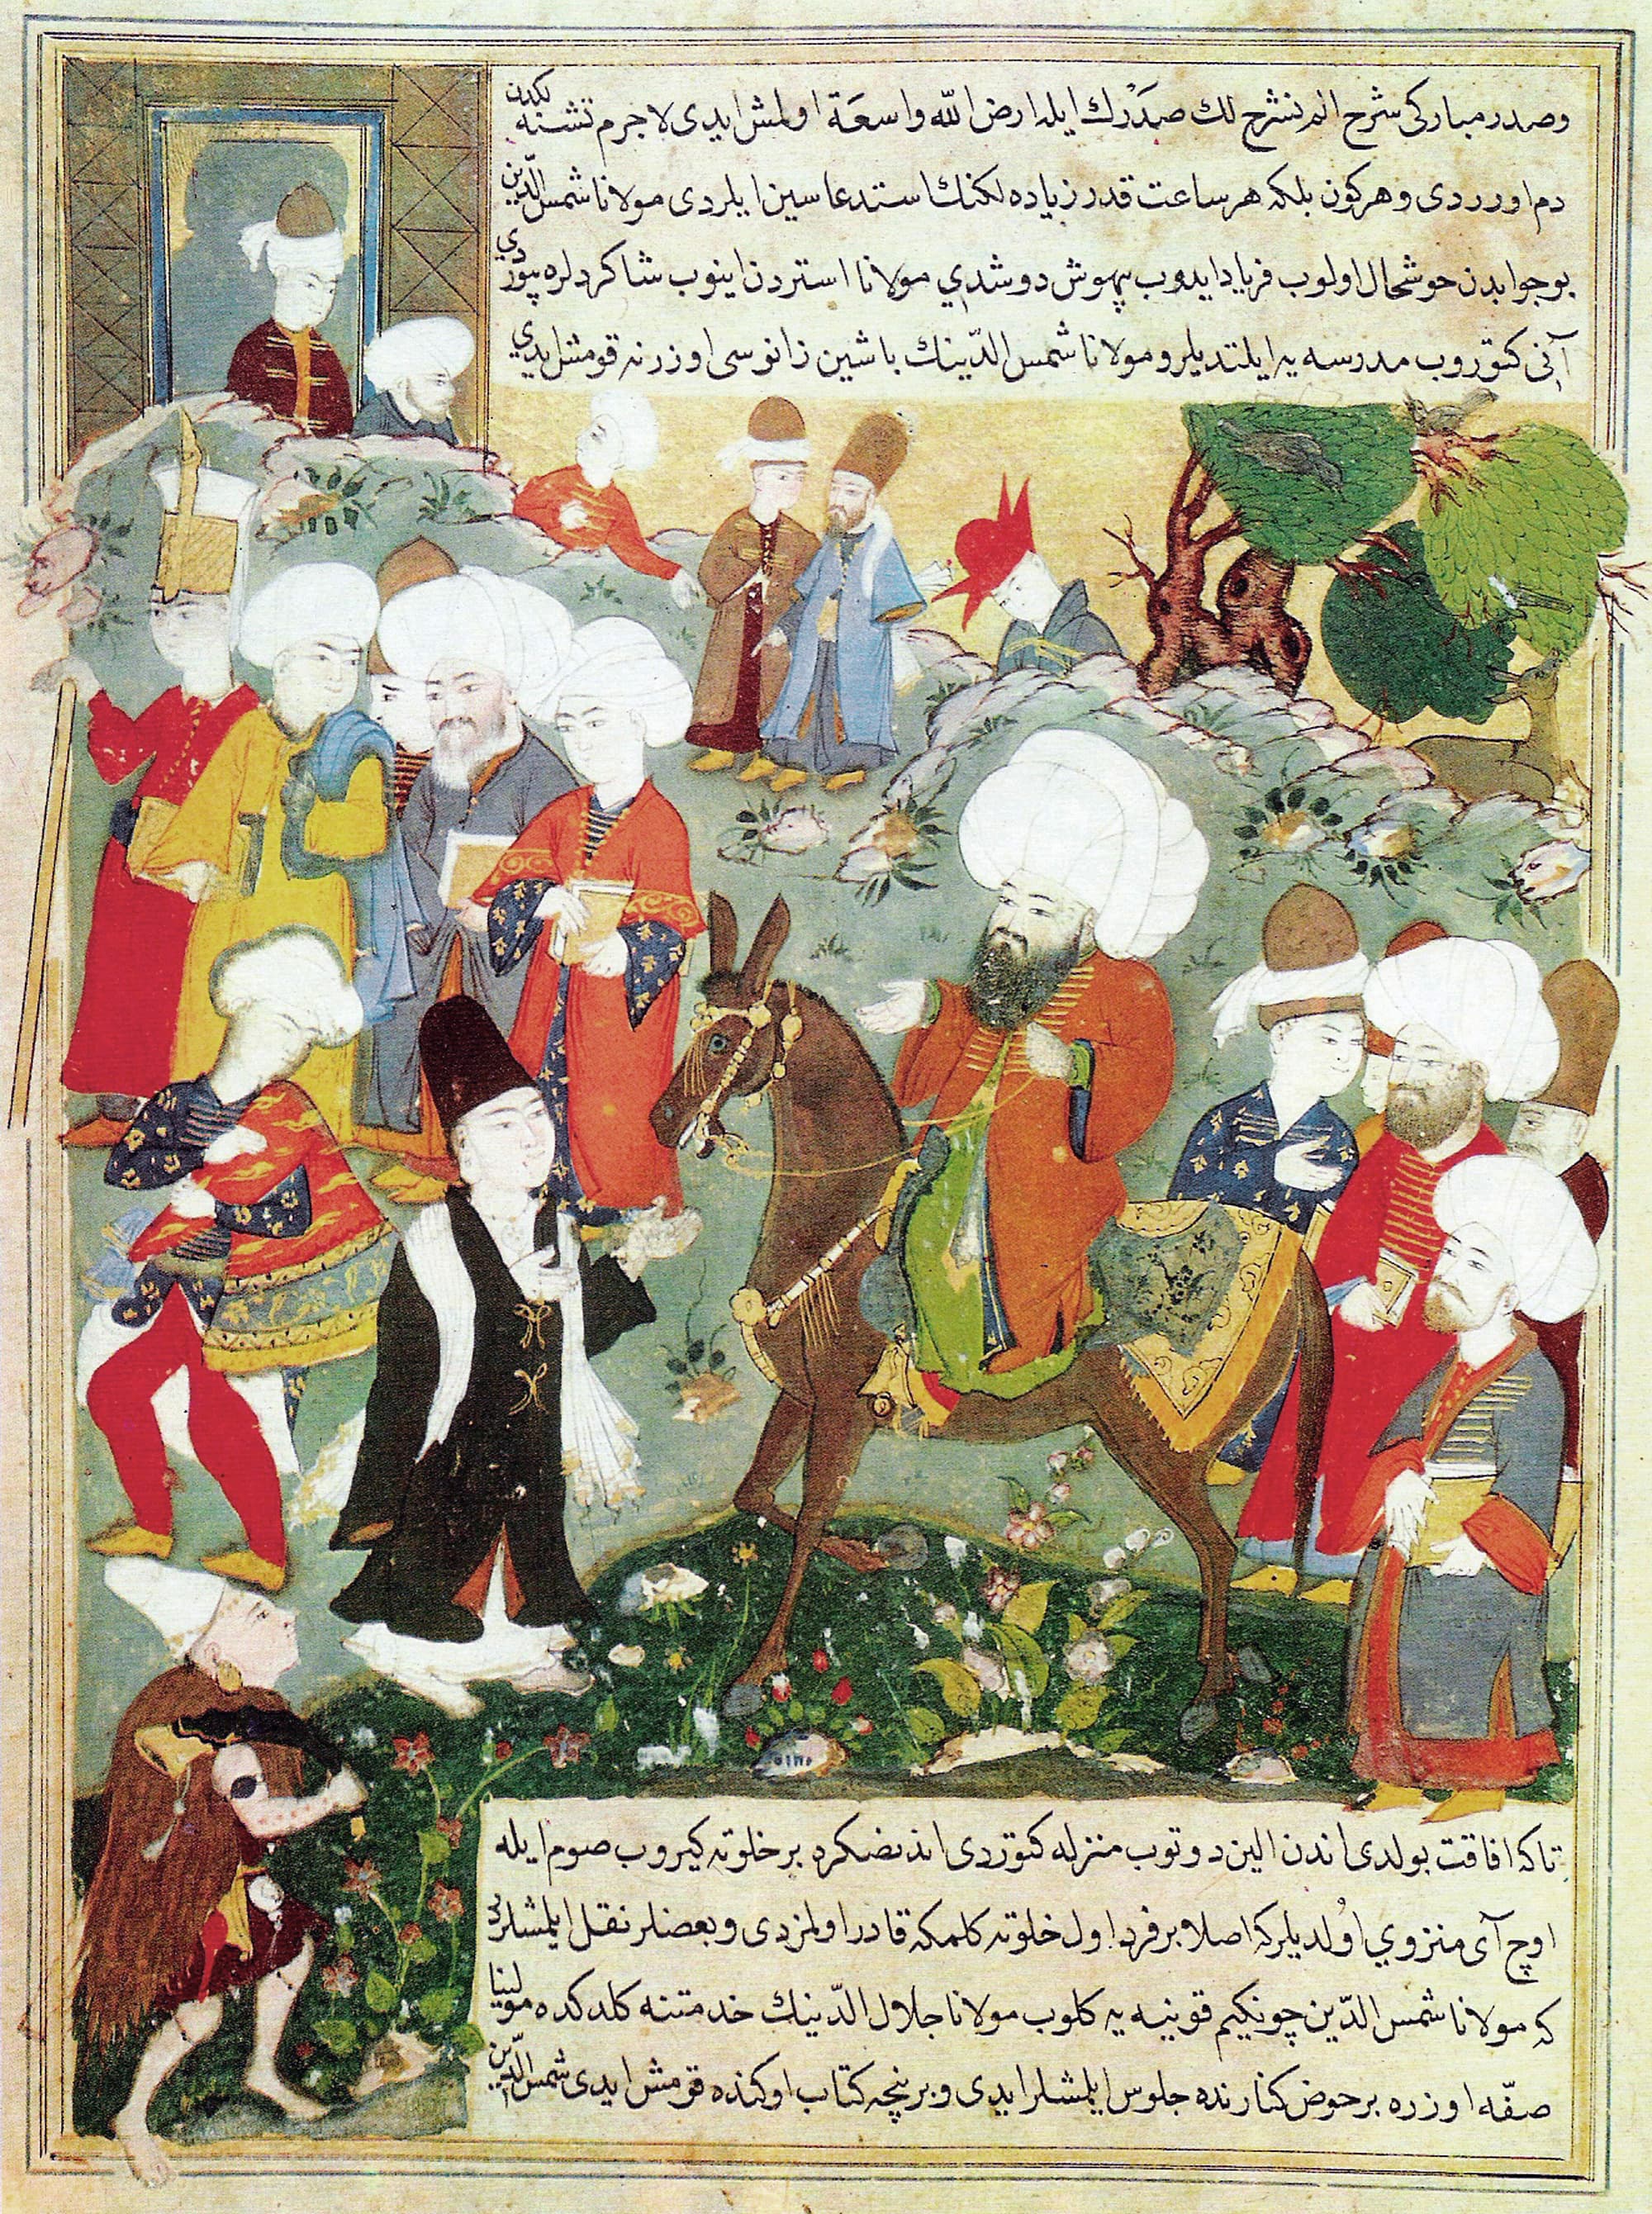 وصدر مباركى شرح الم نشرح لك صدرك ايله ارض الله واسعة اولمش ايدى لا جرم تشنه لكدن
دم اورردى وهركون بلكه هر ساعت قدر زياده لكنك استدعاسين ايلردى مولانا شمس الدّين
بو جوابدن خوشحال اولوب فرياد ايدوب بيهوش دوشدي مولانا استردن اينوب شاكردلره بيوردي
آنى كتوروب مدرسه يه ايلتديلر و مولانا شمس الدّينك باشين زانوسى اوزرنه قومشلر ايدي
تا كه افاقت بولدى اندن الين دوتوب منزله كتوردى اندنصكره بر خلوته كيروب صوم ايله
اوچ آى منزوي اولديلر كه اصلا بر فرد اول خلوته كلمكه قادر اولمزدى و بعضلر نقل ايلمشلردر
كه مولانا شمس الدّين چونكيم قونيه يه كلوب مولانا جلال الدّينك خدمتنه كلدكده مولينا
صفّه اوزره بر حوض كنارنده جلوس ايلمشلر ايدى و بر نيچه كتاب اوكنده قومش ايدى شمس الدّين